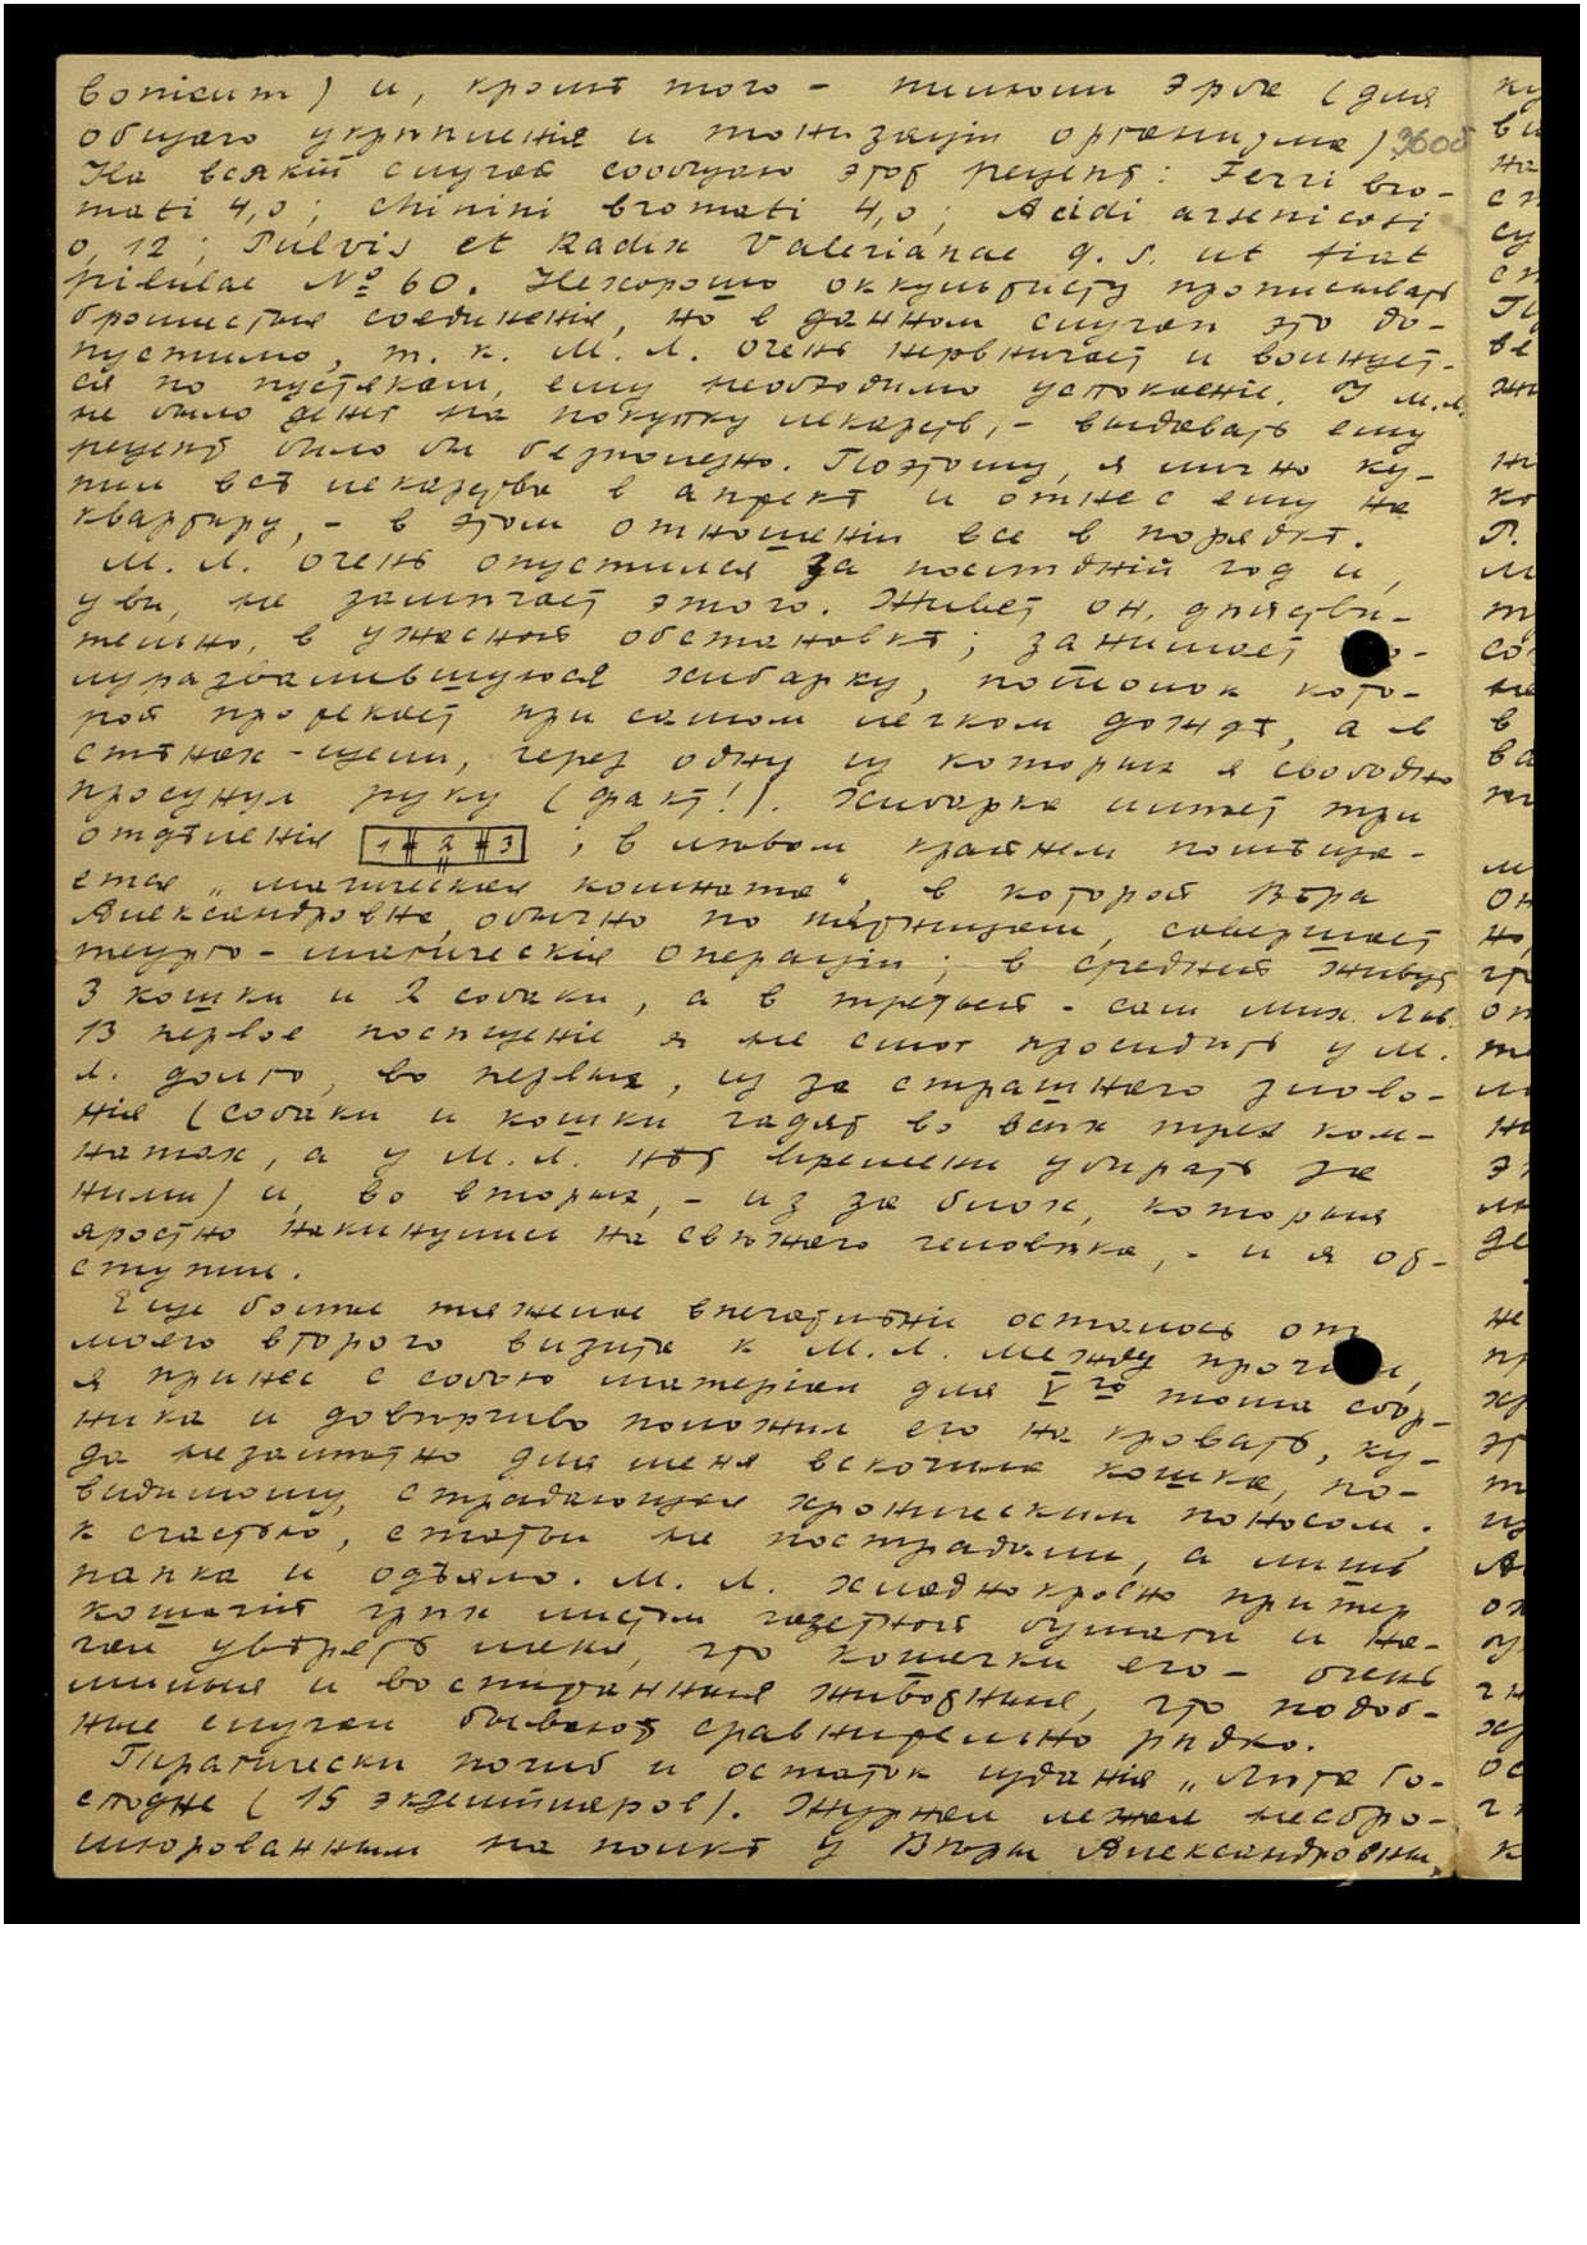 bonicum) и, кромѣ того - пилюли Эрба (для
общаго укрѣпленія и тонизаціи организма)
На всякій случай сообщаю этот рецепт: Ferri bro-
mati 4,0; Chinini bromati 4,0; Acidi arsenicosi
0,12; Pulvis et Radix Valerianae q. s. ut fiat
pilulae № 60. Нехорошо оккультисту прописывать
бромистыя соединенія, но в данном случаѣ это до-
пустимо, т. к. М. Л. очень нервничает и волнует-
ся по пустякам, ему необходимо успокоеніе. У М. Л.
не было денег на покупку лекарств, - выдавать ему
рецепт было бы безполезно. Поэтому, я лично ку-
пил всѣ лекарства в аптекѣ и отнес ему на
квартиру, - в этом отношеніи все в порядкѣ.
М. Л. очень опустился за послѣдній год и,
увы, не замѣчает этого. Живет он, дѣйстви-
тельно, в ужасной обстановкѣ; занимает по-
луразвалившуюся хибарку, потолок кото-
рой протекает при самом легком дождѣ, а в
стѣнах - щели, через одну из которых я свободно
просунул руку (факт!). Хибарка имѣет три
отдѣленія 1 2 3 ; в лѣвом крайнем помѣща-
ется „магическая комната“, в которой Вѣра
Александровна, обычно по пятницам, совершает
теурго-магическія операціи; в средней живут
3 кошки и 2 собаки, а в третьей - сам Мих. Льв.
В первое посѣщеніе я не смог просидѣть у М.
Л. долго, во первых, из за страшнаго злово-
нія (собаки и кошки гадят во всѣх трех ком-
натах, а у М. Л. нѣт времени убирать за
ними) и, во вторых, - из за блох, которыя
яростно накинулись на свѣжаго человѣка, - и я от-
ступил.
Еще болѣе тяжелое впечатлѣніе осталось от
моего второго визита к М. Л. Между прочим,
я принес с собою матеріал для Vго тома сбор-
ника и довѣрчиво положил его на кровать, ку-
да незамѣтно для меня вскочила кошка, по-
видимому, страдающая хроническим поносом.
К счастью, статьи не пострадали, а лишь
папка и одѣяло. М. Л. хладнокровно притер
кошачій грѣх листом газетной бумаги и на-
чал увѣрять меня, что кошечки его - очень
милыя и воспитанныя животныя, что подоб-
ные случаи бывают сравнительно рѣдко.
Трагически погиб и остаток изданія „Лѣта Го-
сподне (15 экземпляров). Журнал лежал несбро-
шюрованным на полкѣ у Вѣры Александровны,